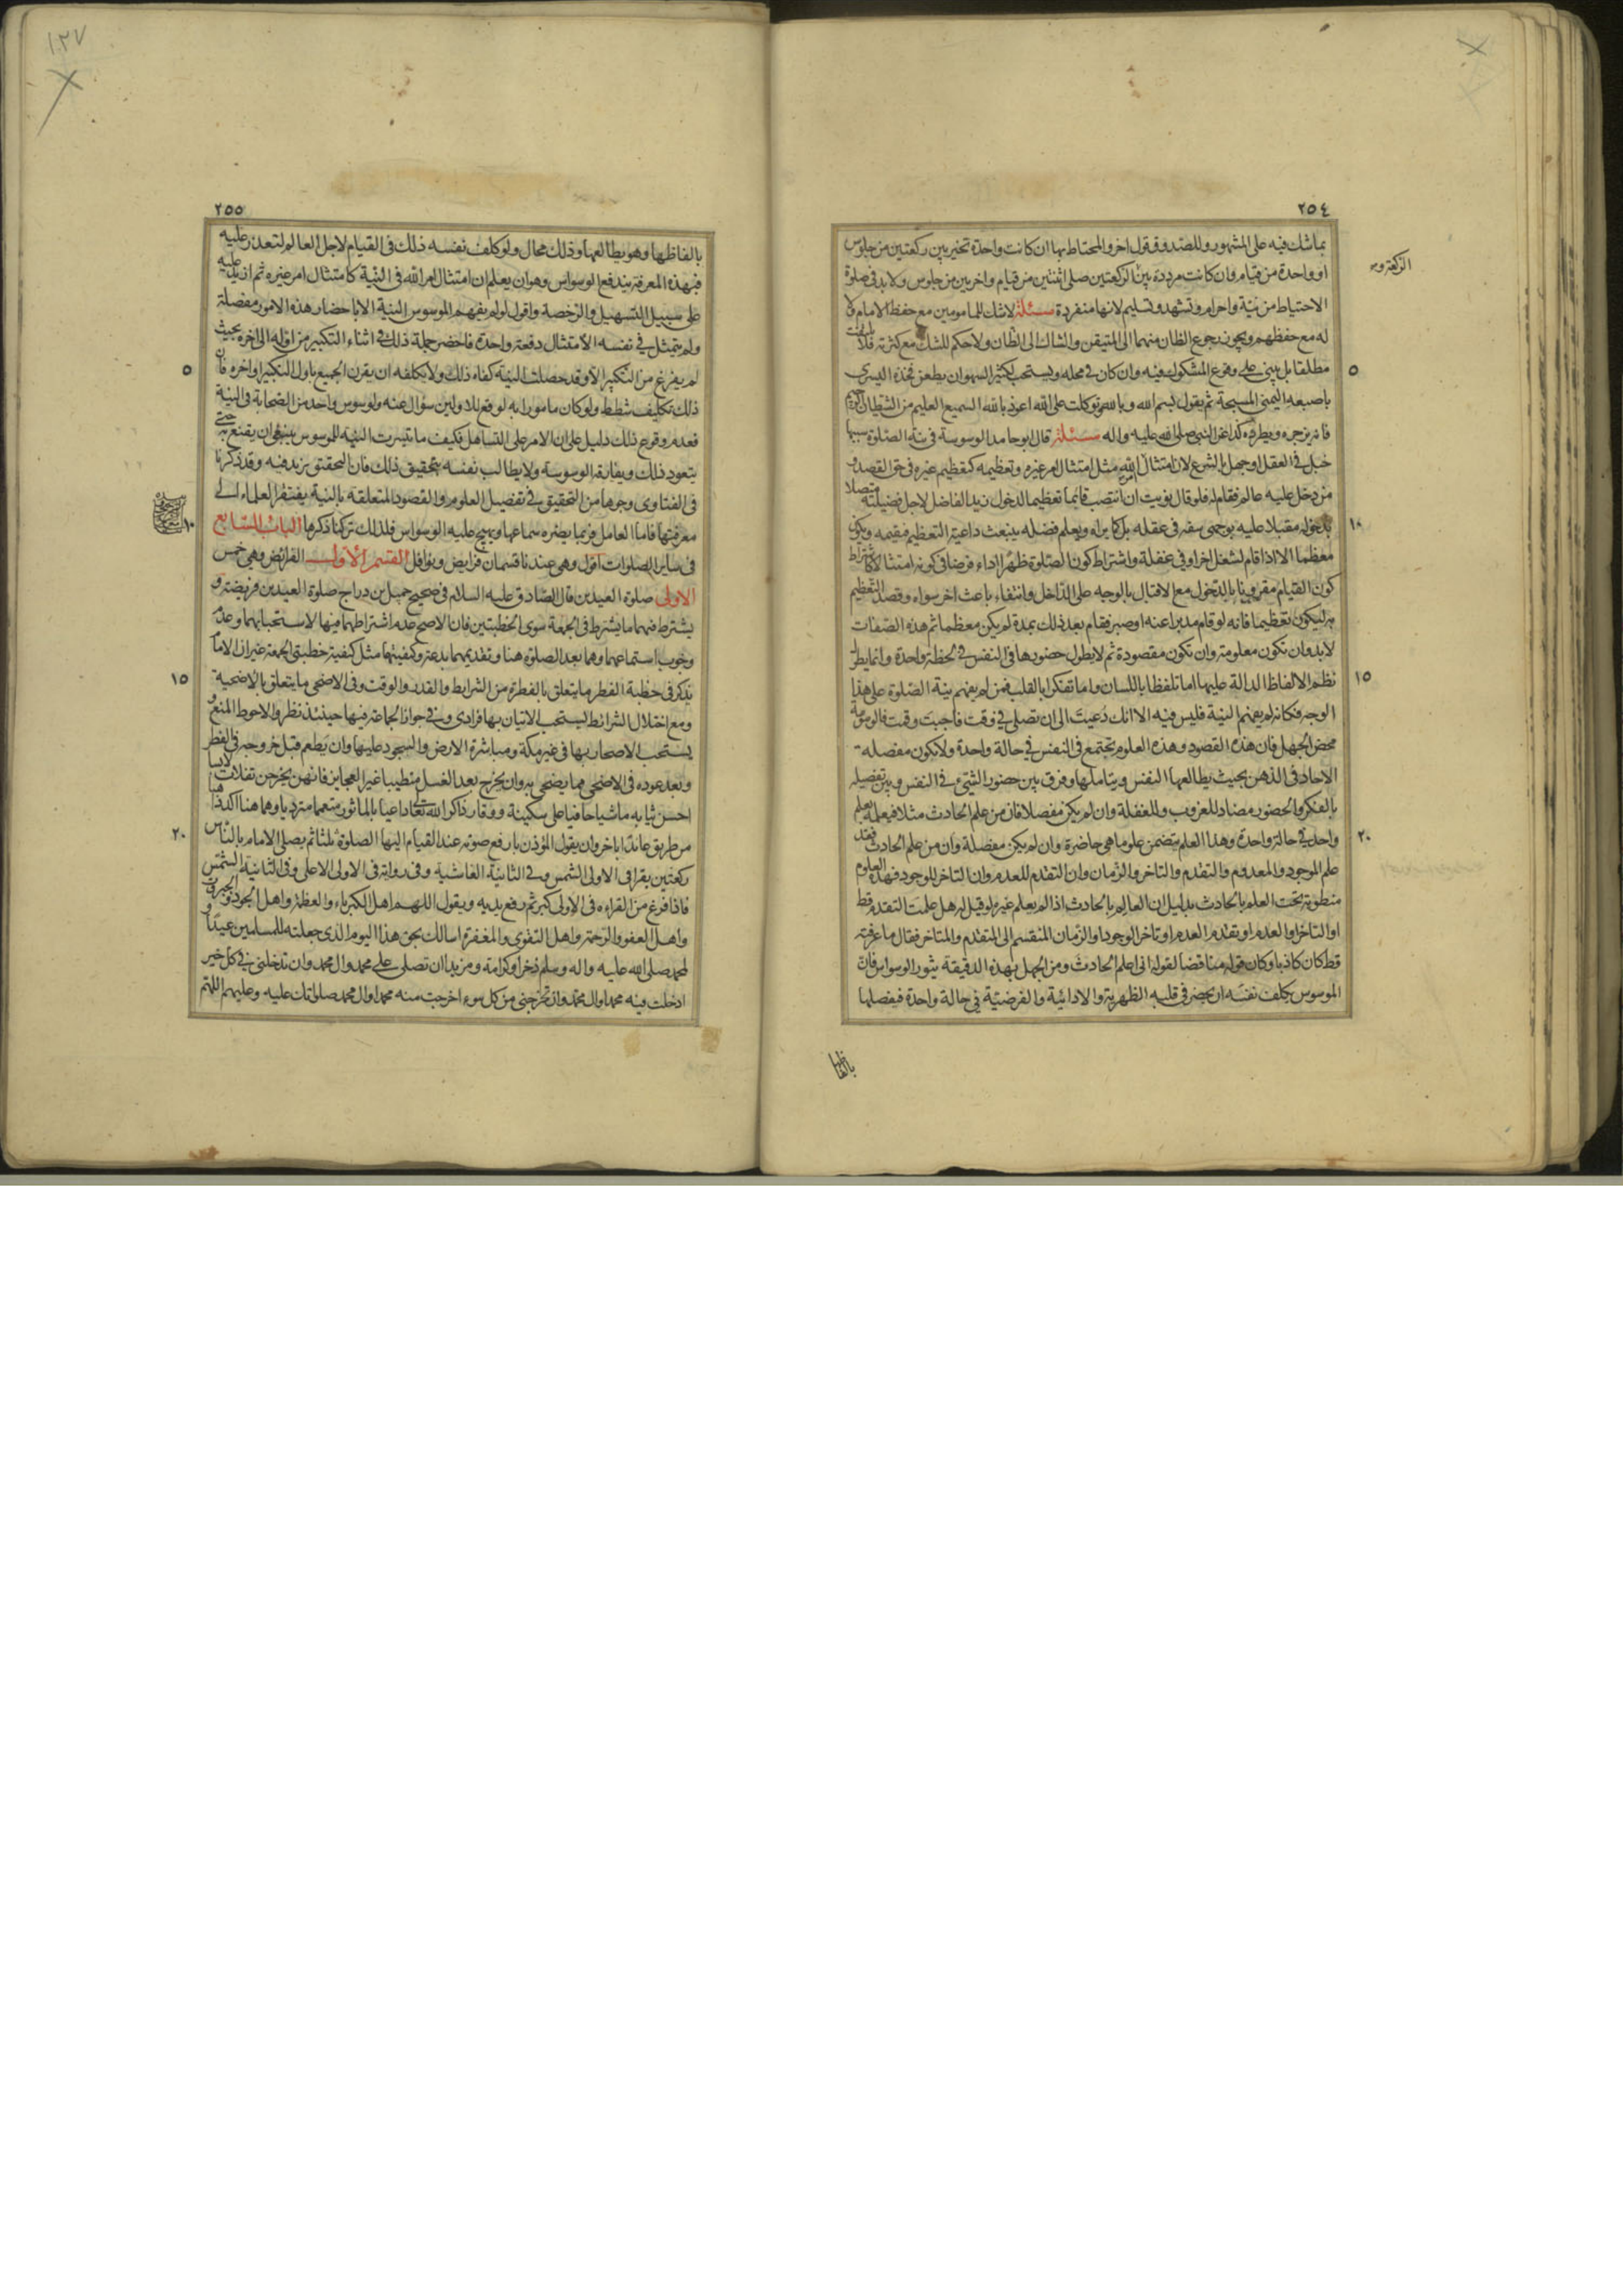 ٢٥٤
بما شك فيه على المشهور وللصدوق قول اخر والمحتاط بها ان كانت واحدة تخير بين ركعتين من جلوس
او واحدة من قيام وان كانت مرددة بين الركعتين صلى اثنتين من قيام واخريين من جلوس ولا بد في صلوة
الاحتياط من نية واحرام وتشهد وتسليم لانها منفردة مسئلة لا شك للمامومين مع حفظ الامام ولا
له مع حفظهم ويجوز رجوع الظان منهما الى المتيقن والشاك الى الظان ولا حكم للشك مع كثرته فلا يلتفت
مطلقا بل يبنى على وقوع المشكوك فيه وان كان في محله ويستحب لكثير السهو ان يطعن فخذه اليسرى
٥
باصبعه اليمنى المسبحة ثم يقول بسم الله وبالله توكلت على الله اعوذ بالله السميع العليم من الشيطان الرجيم
فانه يزجره ويطرده كذا عن النبي صلى الله عليه واله مسئلة قال ابو حامد الوسوسة في نية الصلوة سببها
خبل في العقل او جهل بالشرع لان امتثال امر الله مثل امتثال امر غيره وتعظيمه كتعظيم غيره في حق القصد و
من دخل عليه عالم فقام له فلو قال نويت ان انتصب قائما تعظيما لدخول زيد الفاضل لاجل فضيلته متصلا
بدخوله مقبلا عليه بوجهى سفه في عقله بل كما يراه ويعلم فضله ينبعث داعية التعظيم فيقيمه ويكون
١٠
معظما الا اذا قام لشغل اخر او في غفلة واشتراط كون الصلوة ظهرا اداء فرضا في كونه امتثالا كاشتراط
كون القيام مقرونا بالدخول مع الاقبال بالوجه على الداخل وانتفاء باعث اخر سواه وقصد التعظيم
به ليكون تعظيما فانه لو قام مدبرا عنه او صبر فقام بعد ذلك بمدة لم يكن معظما ثم هذه الصفات
لا بد وان تكون معلومة وان تكون مقصودة ثم لا يطول حضورها في النفس في لحظة واحدة وانما يطول
نظم الالفاظ الدالة عليها اما تلفظا باللسان واما تفكرا بالقلب فمن لم يفهم نية الصلوة على هذا
١٥
الوجه فكانه لم يفهم النية فليس فيه الا انك دعيت الى ان تصلي في وقت فاجبت وقمت فالوسوسة
محض الجهل فان هذه القصود وهذه العلوم تجتمع في النفس في حالة واحدة ولا تكون مفصلة
الاحاد في الذهن بحيث يطالعها النفس ويتاملها وفرق بين حضور الشيء في النفس وبين تفصيله
بالفكر والحضور مضاد للعزوب والغفلة وان لم يكن مفصلا فان من علم الحادث مثلا فيعلمه بعلم
واحد في حالة واحدة وهذا العلم يتضمن علوما هي حاضرة وان لم يكن مفصلة وان من علم الحادث فقد
٢٠
علم الموجود والمعدوم والتقدم والتاخر والزمان وان التقدم للعدم وان التاخر للوجود فهذه العلوم
منطوية تحت العلم بالحادث بدليل ان العالم بالحادث اذا لم يعلم غيره لو قيل له هل علمت التقدم قط
او التاخر او العدم او تقدم العدم او تاخر الوجود او الزمان المنقسم الى المتقدم والمتاخر فقال ما عرفته
قط كان كاذبا وكان قوله مناقضا لقوله انى اعلم الحادث ومن الجهل بهذه الدقيقة يثور الوسواس فان
الموسوس يكلف نفسه ان يحضر في قلبه الظهرية والادائية والفرضية في حالة واحدة فيفصلها
بالفاظها
١٢٧
٢٥٥
بالفاظها وهو يطالعها وذلك محال ولو كلف نفسه ذلك في القيام لاجل العالم لتعذر عليه
فبهذه المعرفة يندفع الوسواس وهو ان يعلم ان امتثال امر الله في النية كامتثال امر غيره ثم ازيد عليه
على سبيل التسهيل والرخصة واقول لو لم يفهم الموسوس النية الا باحضار هذه الامور مفصلة
ولم يتمثل في نفسه الامتثال دفعة واحدة فاحضر جملة ذلك في اثناء التكبير من اوله الى اخره بحيث
لم يفرغ من التكبير الا وقد حصلت النية كفاه ذلك ولا نكلفه ان يقرن الجميع باول التكبير او اخره فان
٥
ذلك تكليف شطط ولو كان مامورا به لوقع للاولين سؤال عنه ولوسوس واحد من الصحابة في النية
فعدم وقوع ذلك دليل على ان الامر على التساهل فكيف ما تيسرت النية للموسوس ينبغي ان يقنع به حتى
يتعود ذلك ويفارقه الوسوسة ولا يطالب نفسه بتحقيق ذلك فان التحقيق يزيد فيه وقد ذكرنا
في الفتاوى وجوها من التحقيق في تفصيل العلوم والقصود المتعلقة بالنية يفتقر العلماء الى
معرفتها فاما العامل فربما يضره سماعها ويهيج عليه الوسواس فلذلك تركنا ذكرها الباب السابع
١٠
في ساير الصلوات اقول وهي عندنا قسمان فرايض ونوافل القسم الاول الفرائض وهي خمس
الاولى صلوة العيدين قال الصادق عليه السلام في صحيح جميل بن دراج صلوة العيدين فريضة و
يشترط فيهما ما يشترط في الجمعة سوى الخطبتين فان الاصح عدم اشتراطهما فيها لاستحبابهما وعدم
وجوب استماعهما وهما بعد الصلوة هنا وتقديمهما بدعة وكيفيتها مثل كيفية خطبتي الجمعة غير ان الامام
يذكر في خطبة الفطر ما يتعلق بالفطرة من الشرايط والقدر والوقت وفي الاضحى ما يتعلق بالاضحية
١٥
ومع اختلال الشرائط يستحب الاتيان بها فرادى وفي جواز الجماعة فيها حينئذ نظر والاحوط المنع و
يستحب الاصحار بها في غير مكة ومباشرة الارض والسجود عليها وان يطعم قبل خروجه في الفطر
وبعد عوده في الاضحى مما يضحى به وان يخرج بعد الغسل متطيبا غير العجايز فانهن يخرجن تفلات لابسا
احسن ثيابه ماشيا حافيا على سكينة ووقار ذاكرا لله تعالى داعيا بالماثور متعمما مترديا وهما هنا اكد ذاهبا
من طريق عائدا باخر وان يقول المؤذن بارفع صوته عند القيام اليها الصلوة ثلثا ثم يصلى الامام بالناس
٢٠
ركعتين يقرا في الاولى الشمس وفي الثانية الغاشية وفي رواية في الاولى الاعلى وفي الثانية الشمس
فاذا فرغ من القراءة في الاولى كبر ثم رفع يديه ويقول اللهم اهل الكبرياء والعظمة واهل الجود والجبروت
واهل العفو والرحمة واهل التقوى والمغفرة اسالك بحق هذا اليوم الذى جعلته للمسلمين عيدا و
لمحمد صلى الله عليه واله وسلم ذخرا وكرامة ومزيدا ان تصلى على محمد وال محمد وان تدخلنى في كل خير
ادخلت فيه محمدا وال محمد وان تخرجنى من كل سوء اخرجت منه محمدا وال محمد صلواتك عليه وعليهم اللهم